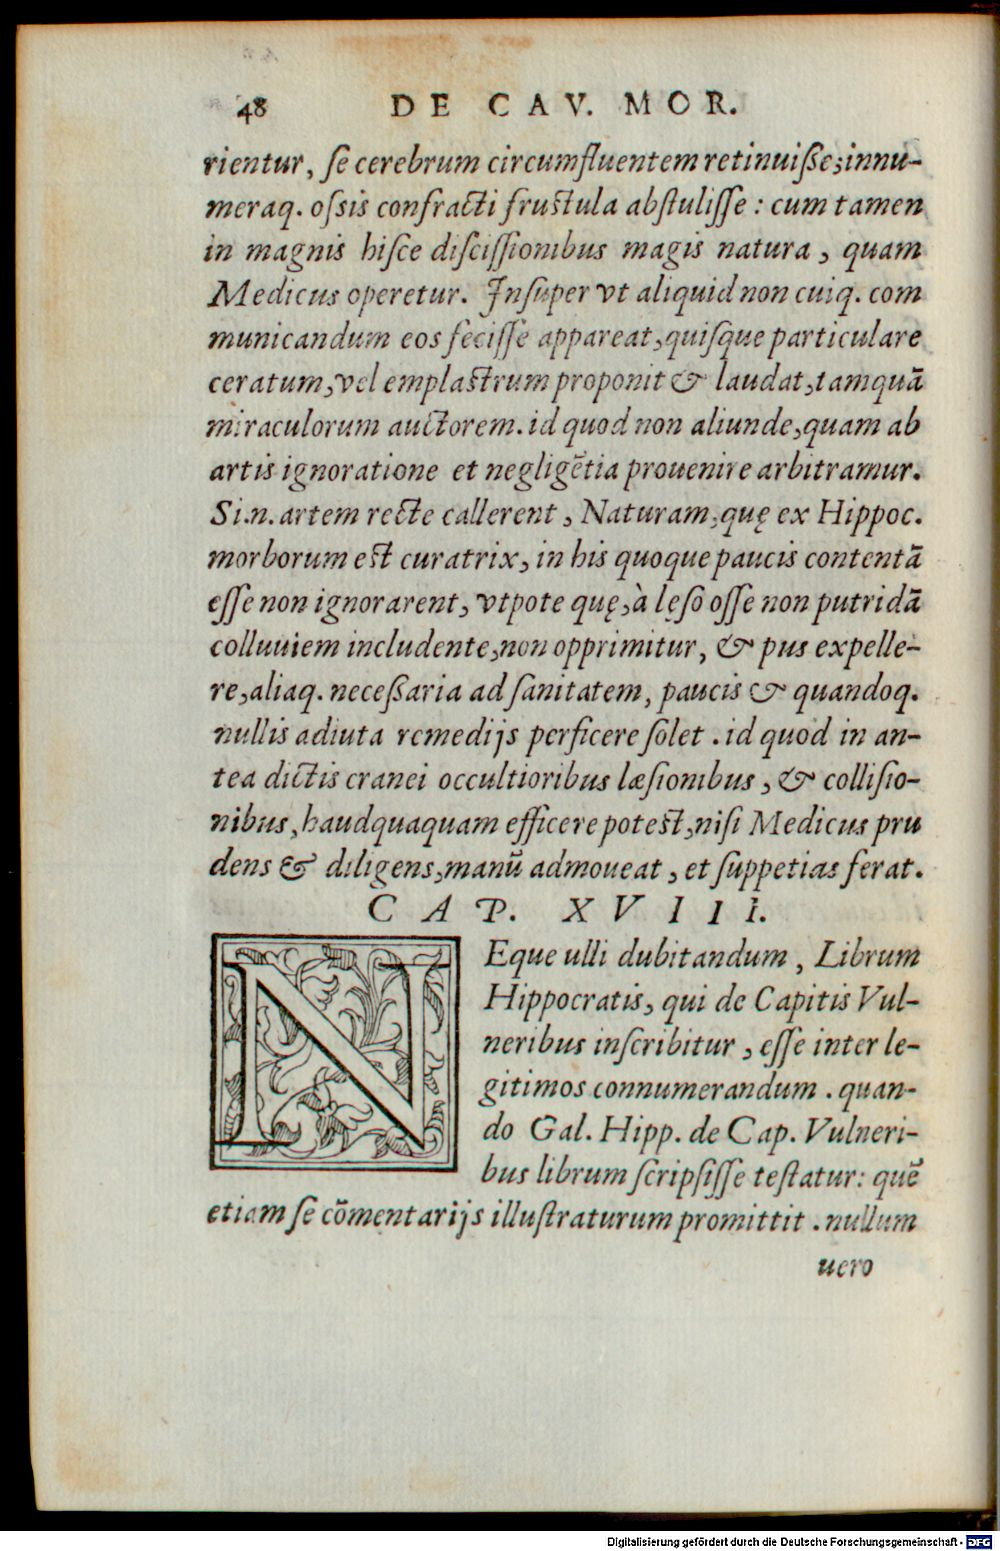 48 DE CAV. MOR.
rientur, ſe cerebrum circumfluentem retinuiße; innu-
meraq. oſsis confracti fruſtula abſtuliſſe : cum tamen
in magnis hiſce diſciſſionibus magis natura, quam
Medicus operetur. Inſuper vt aliquid non cuiq. com
municandum eos feciſſe appareat, quiſque particulare
ceratum, vel emplaſtrum proponit & laudat, tamquā
miraculorum auctorem. id quod non aliunde, quam ab
artis ignoratione et negligētia prouenire arbitramur.
Si.n. artem recte callerent, Naturam, quę ex Hippoc.
morborum eſt curatrix, in his quoque paucis contentā
eſſe non ignorarent, vtpote quę, à lęſo oſſe non putridā
colluuiem includente, non opprimitur, & pus expelle-
re, aliaq. neceßaria ad ſanitatem, paucis & quandoq.
nullis adiuta remedijs perficere ſolet. id quod in an-
tea dictis cranei occultioribus læſionibus, & colliſio-
nibus, haudquaquam efficere poteſt, niſi Medicus pru
dens & diligens, manū admoueat, et ſuppetias ferat.
CAP. XVIII.
NEque ulli dubitandum, Librum
Hippocratis, qui de Capitis Vul-
neribus inſcribitur, eſſe inter le-
gitimos connumerandum. quan-
do Gal. Hipp. de Cap. Vulneri-
bus librum ſcripſiſſe teſtatur: quē
etiam ſe cōmentarijs illuſtraturum promittit. nullum
uero
Digitalisierung gefördert durch die Deutsche Forschungsgemeinschaft - DFG